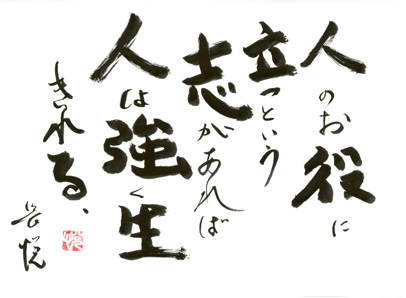 人のお役に
立つという
志があれば
人は強く生
きれる、
悦